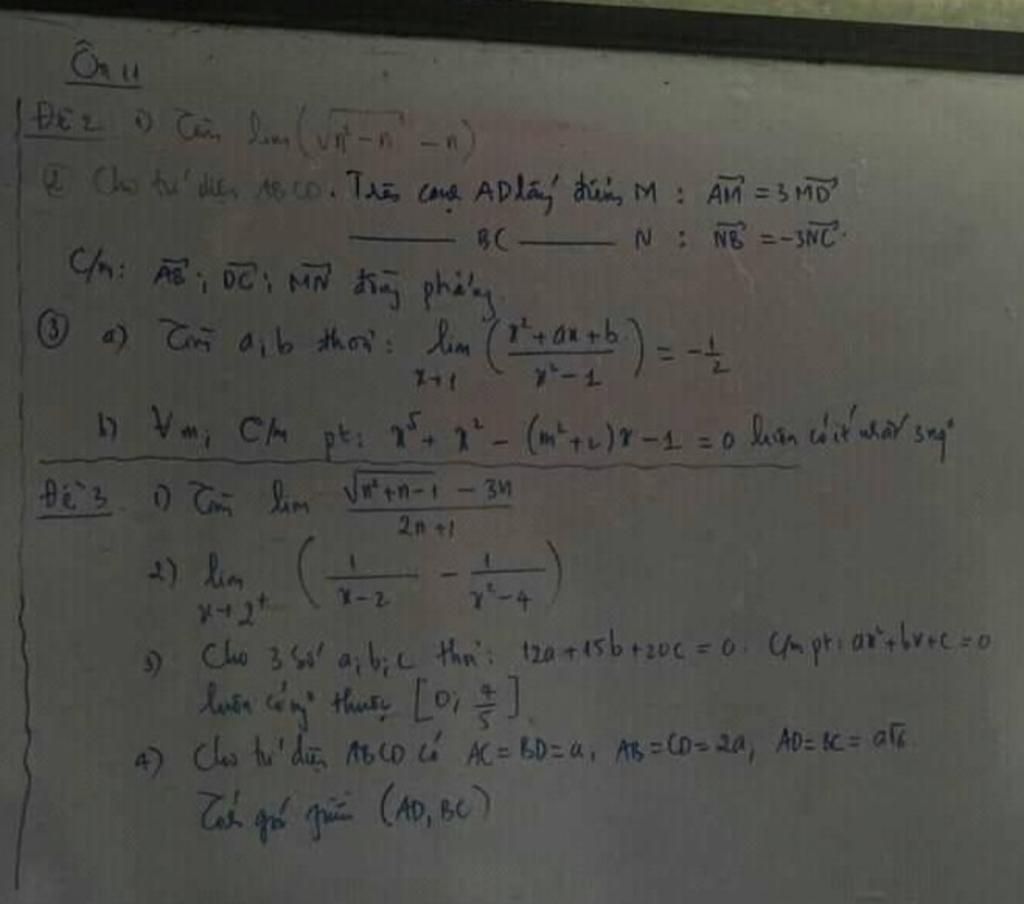 Ôn 11
Đề 2 1) Tìm lim(√n²-n - n)
② Cho tứ diện ABCD. Trên cạnh AD lấy điểm M : AM = 3MD
——— BC ——— N : NB = -3NC.
C/m: AB; DC; MN đồng phẳng.
③ a) Tìm a, b thoả: lim x→1 ((x²+ax+b)/(x²-1)) = -1/2
b) ∀m, C/m pt: x⁵ + x² - (m²+2)x - 1 = 0 luôn có ít nhất 3 ng°
Đề 3 1) Tìm lim (√n²+n-1 - 3n)/(2n+1)
2) lim x→2⁺ (1/(x-2) - 1/(x²-4))
3) Cho 3 số a, b, c thoả: 12a+15b+20c = 0. C/m pt: ax²+bx+c=0
luôn có ng° thuộc [0; 4/5]
4) Cho tứ diện ABCD có AC = BD = a, AB = CD = 2a, AD = BC = a√6.
Tính góc giữa (AD, BC)